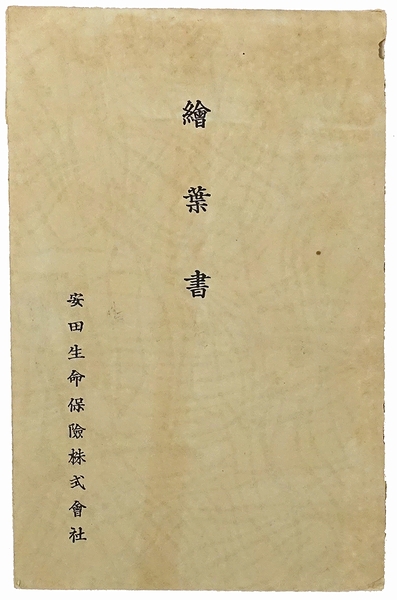 繪葉書
安田生命保險株式會社